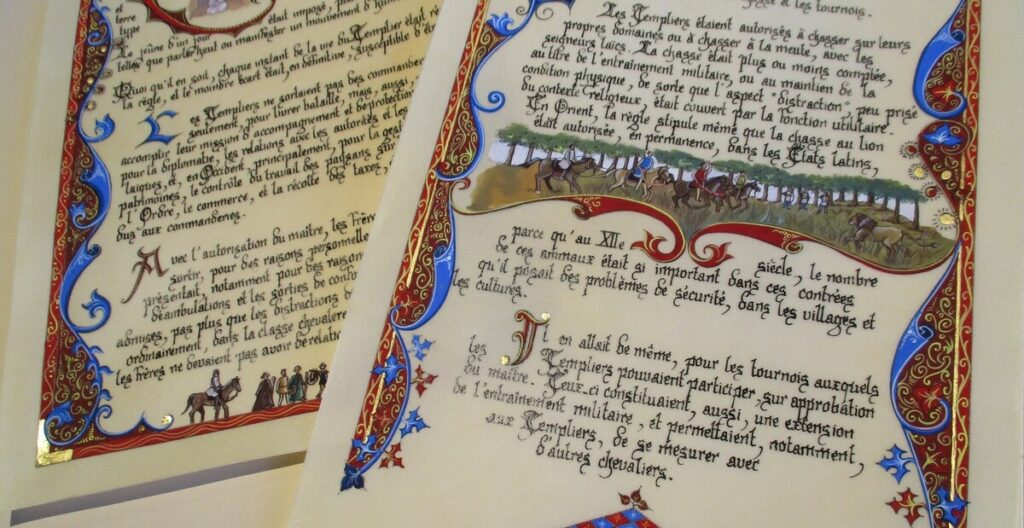 et
terre
type
était imposé, pour
Le jeûne d'un jour
telles que parler haut ou manifester un mouvement d'
Quoi qu'il en soit, chaque instant de la vie du Templier était ré
la règle, et le moindre écart était, en définitive, susceptible d'
Les Templiers ne sortaient pas des commander
seulement, pour livrer bataille, mais, aussi,
accomplir leur mission d'accompagnement et de protection
pour la diplomatie, les relations avec les autorités et les
laïques, et, en Occident, principalement, pour la gest
patrimoines, le contrôle du travail des paysans sur
l'Ordre, le commerce, et la récolte des taxes,
dus aux commanderies.
Avec l'autorisation du maître, les Frère
sortir, pour des raisons personnelle
présentait, notamment pour des raison
déambulations et les sorties de
admises, pas plus que les distractions
ordinairement, dans la classe chevalere
les Frères ne devaient pas avoir de relatio
et les tournois.
Les Templiers étaient autorisés à chasser sur leurs
propres domaines ou à chasser à la meute, avec les
seigneurs laïcs. La chasse était plus ou moins comptée,
au titre de l'entraînement militaire, ou au maintien de la
condition physique, de sorte que l'aspect "distraction", peu prisé
du contexte religieux, était couvert par la fonction utilitaire.
En Orient, la règle stipule même que la chasse au lion
était autorisée, en permanence, dans les États latins,
parce qu'au XIIe siècle, le nombre
de ces animaux était si important dans ces contrées
qu'il posait des problèmes de sécurité, dans les villages et
les cultures.
Il en allait de même, pour les tournois auxquels
les Templiers pouvaient participer, sur approbation
du maître. Ceux-ci constituaient, aussi, une extension
de l'entraînement militaire, et permettaient, notamment,
aux Templiers, de se mesurer avec
d'autres chevaliers.